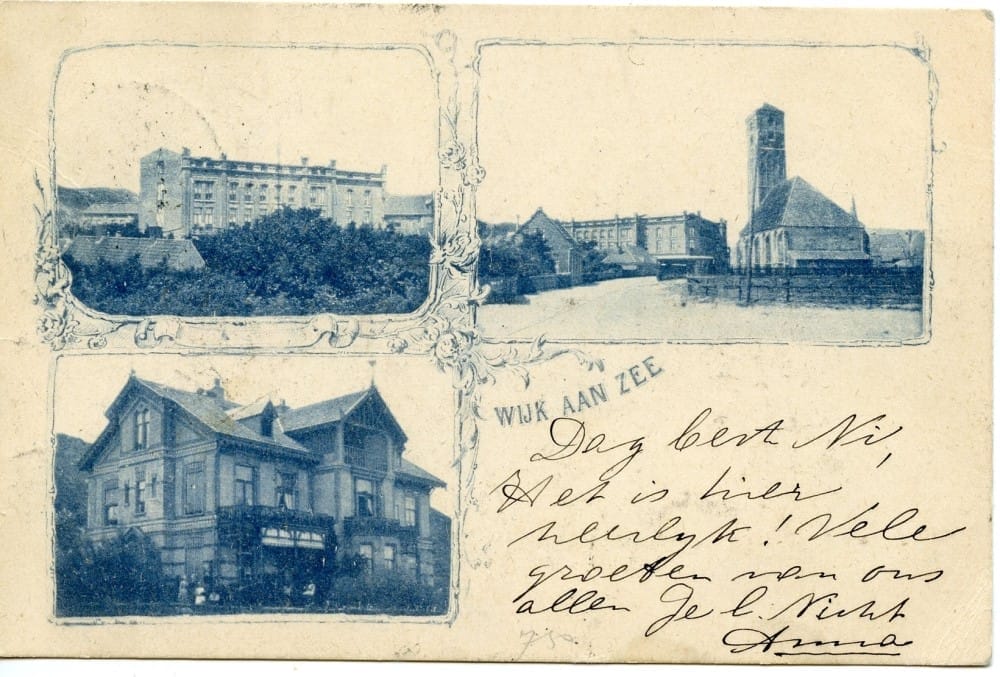 WIJK AAN ZEE
Dag best Ni,
Het is hier
heerlyk! Vele
groeten van ons
allen Je l. Nicht
Anna